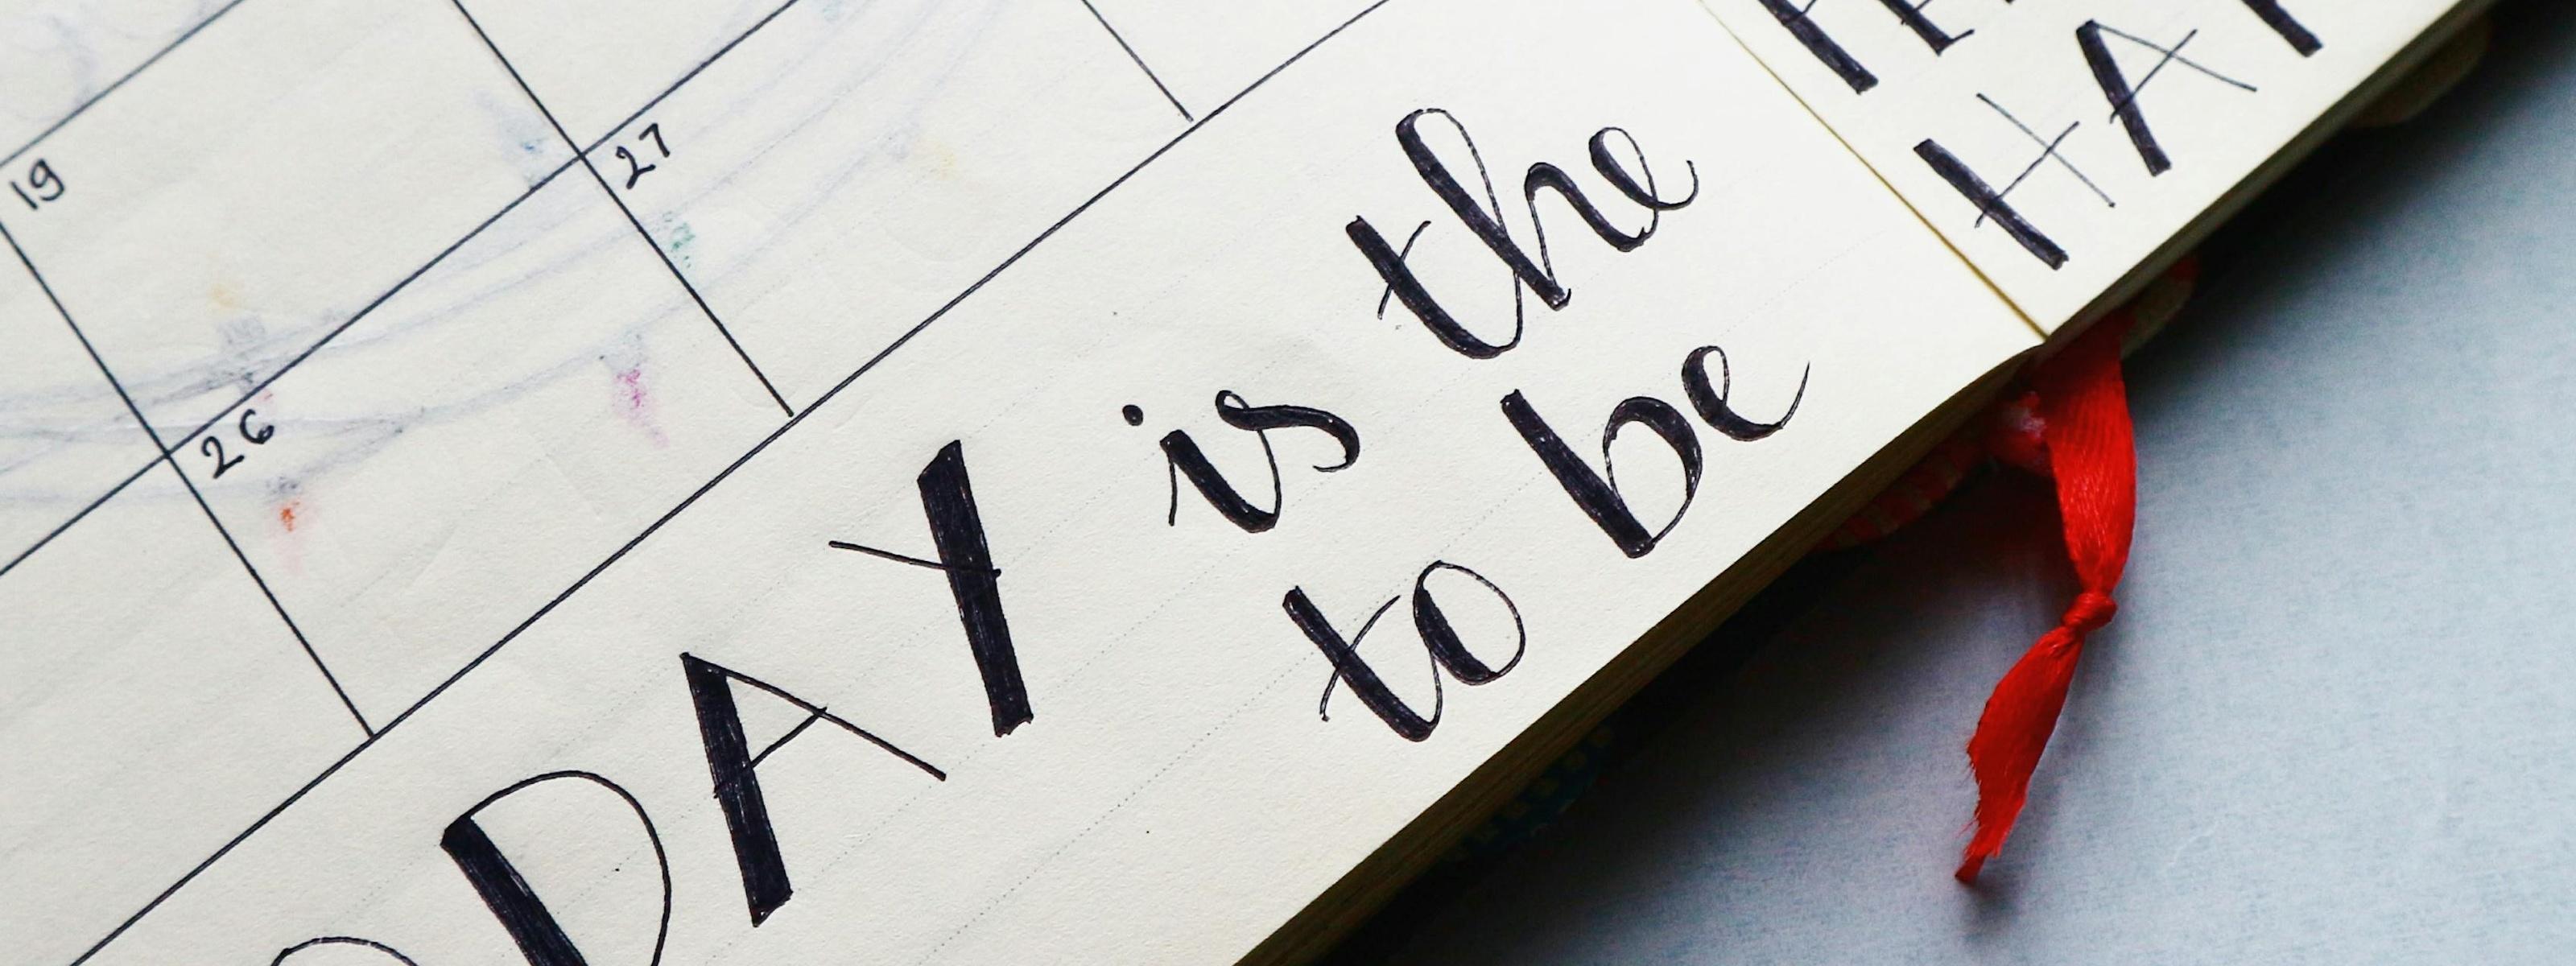 19
27
26
ODAY is the
to be
HA